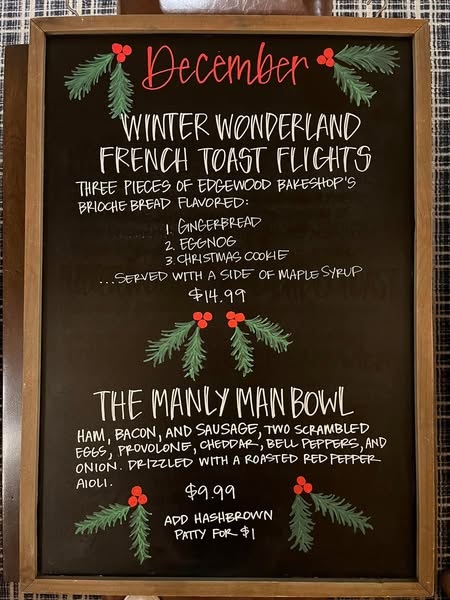 December
WINTER WONDERLAND
FRENCH TOAST FLIGHTS
THREE PIECES OF EDGEWOOD BAKESHOP'S
BRIOCHE BREAD FLAVORED:
1. GINGERBREAD
2. EGGNOG
3. CHRISTMAS COOKIE
...SERVED WITH A SIDE OF MAPLE SYRUP
$14.99
THE MANLY MAN BOWL
HAM, BACON, AND SAUSAGE, TWO SCRAMBLED
EGGS, PROVOLONE, CHEDDAR, BELL PEPPERS, AND
ONION. DRIZZLED WITH A ROASTED RED PEPPER
AIOLI.
$9.99
ADD HASHBROWN
PATTY FOR $1